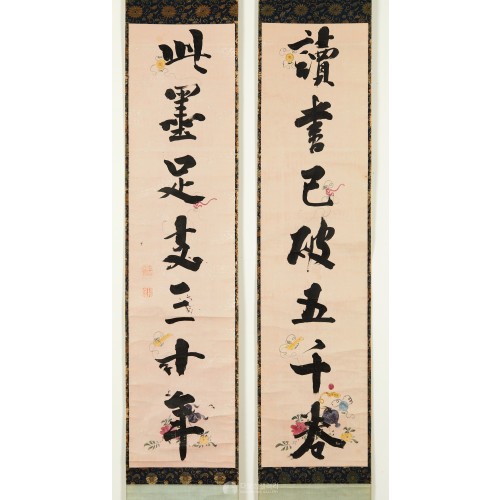 讀書已破五千卷
此墨足支三十年